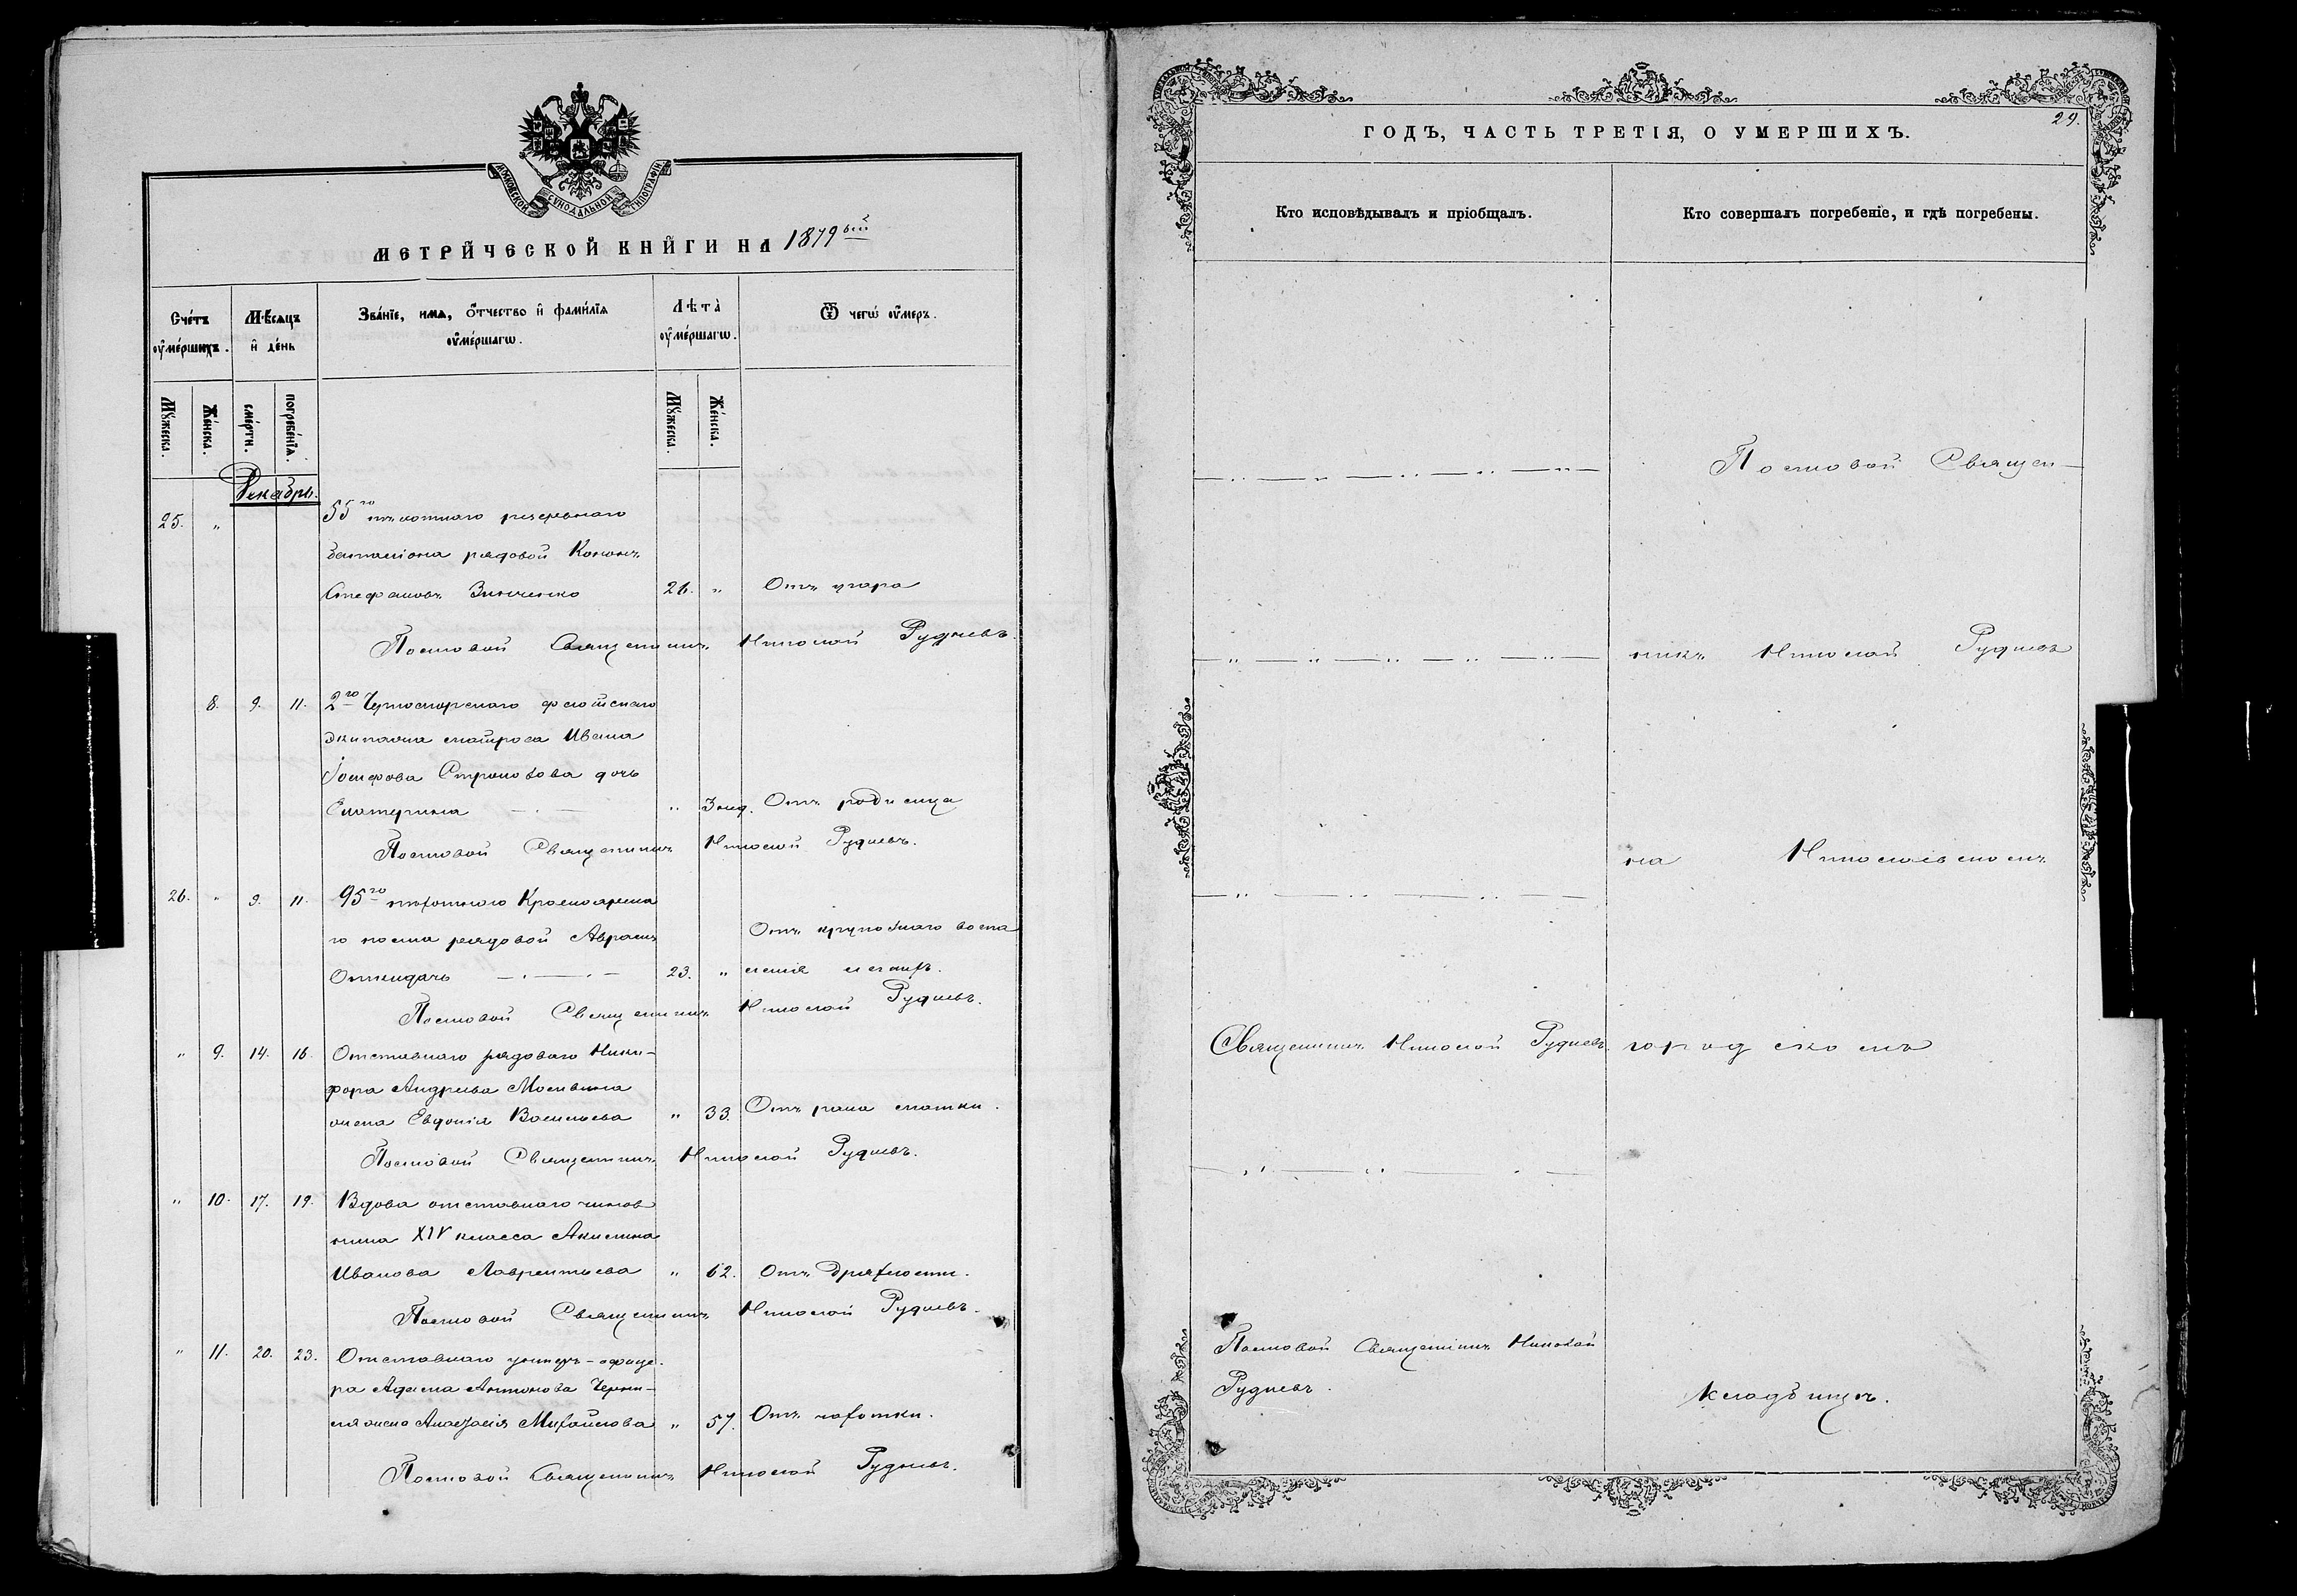 МОСКОВСКОЙ СѴНОДАЛЬНОЙ ТИПОГРАФІИ
МЕТРИ́ЧЕСКОЙ КНИ́ГИ НА 1879 ый
Сче́тъ ᲂу҆ме́ршихъ.
Мѣ́сѧцъ и҆ де́нь
Зва́нїе, имѧ, ѻ҆́тчество и҆ фами́лїѧ ᲂу҆ме́ршагѡ.
Лѣта̀ ᲂу҆ме́ршагѡ.
Ѿ чегѡ̀ ᲂу҆́меръ.
Мꙋ́жеска.
Же́нска.
сме́рти.
погребе́нїѧ.
Мꙋ́жеска.
Же́нска.
Декабрь.
25. " 55го пѣхотнаго резервнаго
баталіона рядовой Кононъ
Стефановъ Зинченко 26. " Отъ угара
Полковой Священникъ Николай Рудневъ.
8. 9. 11. 2го Черноморскаго флотскаго
экипажа матроса Ивана
Іосифова дочь
Екатерина " 3 нед. Отъ родимца
Полковой Священникъ Николай Рудневъ.
26. " 9. 11. 95го пѣхотнаго Красноярска
го полка рядовой Аврамъ
Откидачъ 23. " Отъ крупознаго воспа
ленія легкихъ.
Полковой Священникъ Николай Рудневъ.
" 9. 14. 16. Отставнаго рядоваго Ники-
фора Андреева Москвина
жена Евдокія Васильева " 33. Отъ рака матки.
Полковой Священникъ Николай Рудневъ.
" 10. 17. 19. Вдова отставнаго чинов
ника XIV класса Акилина
Иванова Лаврентьева " 62. Отъ дряхлости.
Полковой Священникъ Николай Рудневъ.
" 11. 20. 23. Отставнаго унтеръ-офице-
ра Адама Антонова
жена Анастасія Михайлова " 57. Отъ чахотки.
Полковой Священникъ Николай Рудневъ.
29.
ГОДЪ, ЧАСТЬ ТРЕТІЯ, О УМЕРШИХЪ.
Кто исповѣдывалъ и пріобщалъ.
Кто совершалъ погребеніе, и гдѣ погребены.
Полковой Священ-
никъ Николай Рудневъ
на Николаевскомъ
Священникъ Николай Рудневъ.
городскомъ
Полковой Священникъ Николай
Рудневъ.
кладбищѣ.